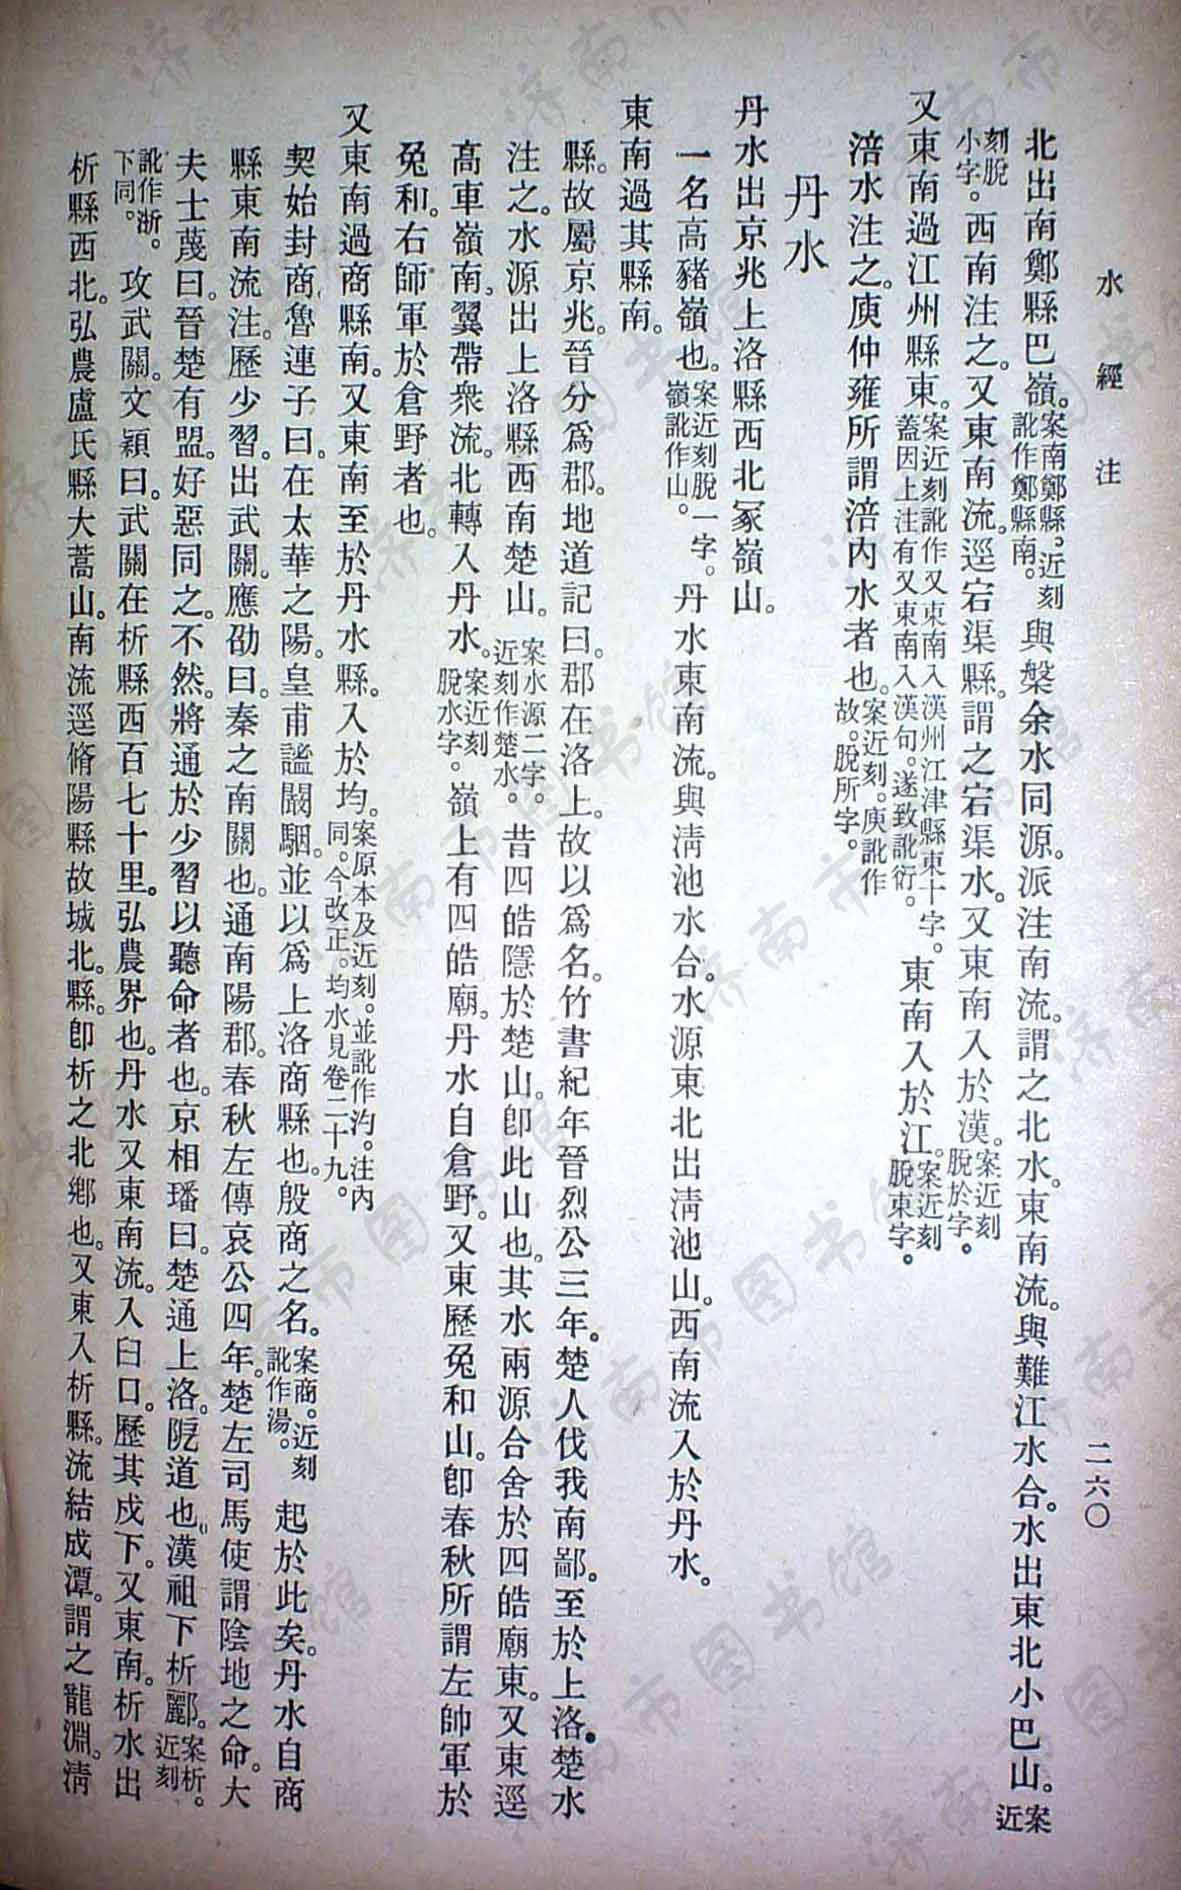 水經注
二六〇
北出南鄭縣巴嶺。案南鄭縣，近刻訛作鄭縣南。與槃余水同源。派注南流。謂之北水。東南流。與難江水合。水出東北小巴山。案近
刻脫小字。西南注之。又東南流。逕宕渠縣。謂之宕渠水。又東南入於漢。案近刻脫於字。
又東南過江州縣東。案近刻訛作又東南入漢州江津縣東十字。蓋因上注有又東南入漢句。遂致訛衍。東南入於江。案近刻脫東字。
涪水注之。庾仲雍所謂涪內水者也。案近刻。庾訛作故。脫所字。
丹水
丹水出京兆上洛縣西北冢嶺山。
一名高豬嶺也。案近刻脫一字。嶺訛作山。丹水東南流。與清池水合。水源東北出清池山。西南流入於丹水。
東南過其縣南。
縣。故屬京兆。晉分爲郡。地道記曰。郡在洛上。故以爲名。竹書紀年晉烈公三年。楚人伐我南鄙。至於上洛。楚水
注之。水源出上洛縣西南楚山。案水源二字。近刻作楚水。昔四皓隱於楚山。卽此山也。其水兩源合舍於四皓廟東。又東逕
高車嶺南。翼帶衆流。北轉入丹水。案近刻脫水字。嶺上有四皓廟。丹水自倉野。又東歷兔和山。卽春秋所謂左師軍於
兔和。右師軍於倉野者也。
又東南過商縣南。又東南至於丹水縣。入於均。案原本及近刻。並訛作沟。注內同。今改正。均水見卷二十九。
契始封商。魯連子曰。在太華之陽。皇甫謐闞駰。並以爲上洛商縣也。殷商之名。案商。近刻訛作湯。起於此矣。丹水自商
縣東南流注。歷少習。出武關。應劭曰。秦之南關也。通南陽郡。春秋左傳哀公四年。楚左司馬使謂陰地之命。大
夫士蔑曰。晉楚有盟。好惡同之。不然。將通於少習以聽命者也。京相璠曰。楚通上洛。阨道也。漢祖下析酈。案析。近刻
訛作浙。下同。攻武關。文穎曰。武關在析縣西百七十里。弘農界也。丹水又東南流。入臼口。歷其戍下。又東南。析水出
析縣西北。弘農盧氏縣大蒿山。南流逕脩陽縣故城北。縣。卽析之北鄉也。又東入析縣。流結成潭。謂之龍淵。清